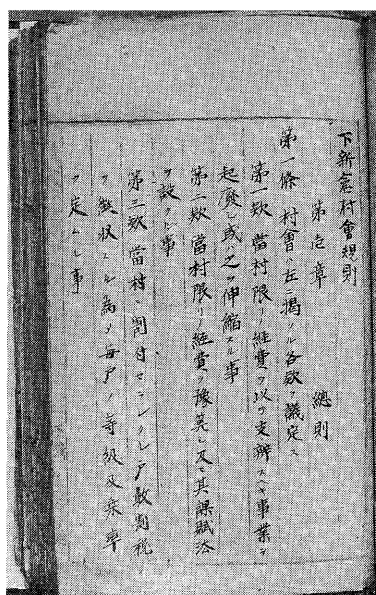 下新倉村會規則
第壱章　總則
第一條　村會ハ左ニ掲クル各欵ヲ議定ス
第一欵　當村限リノ経費ヲ以テ支辨スヘキ事業ヲ
起廢シ或ハ之ヲ伸縮スル事
第二欵　當村限リノ経費ヲ豫筭シ及ヒ其課賦法
ヲ設クル事
第三欵　當村ニ割付セラレタル戸数割税
ヲ徴収スル為メ毎戸ノ等級及乗率
ヲ定ムル事